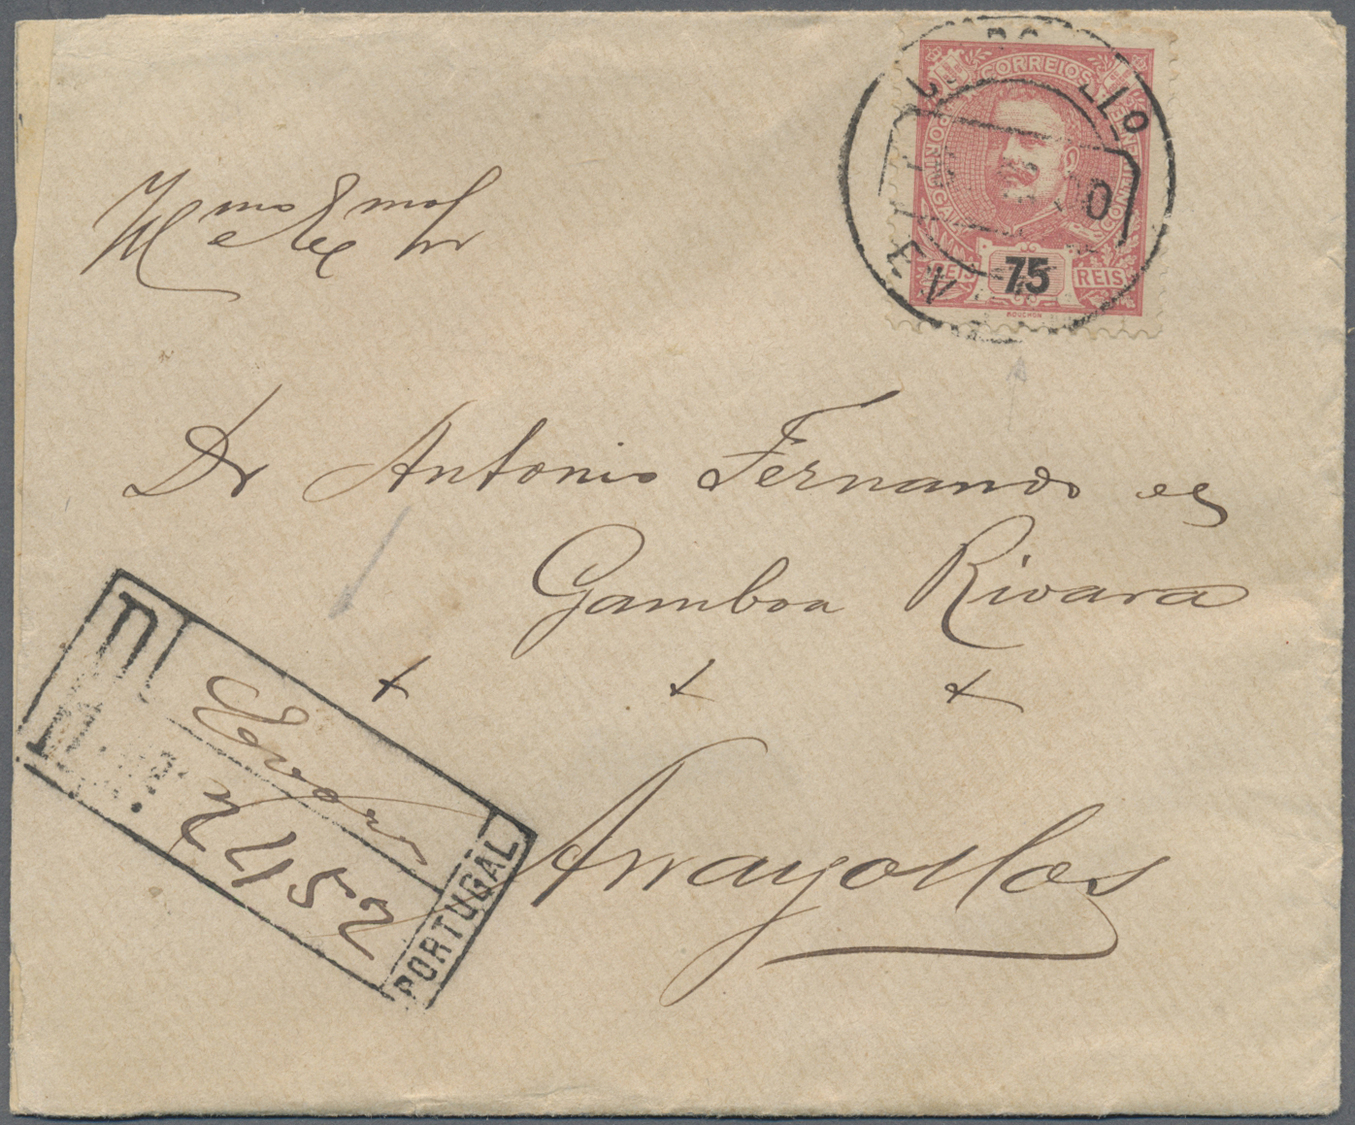 CORREIOS
PORTUGAL
CONTINENTE
REIS 75 REIS
MOUCHON
Dr Antonio Fernando de
Gamboa Rivara
Arrayollos
R
Evora
N 452
PORTUGAL